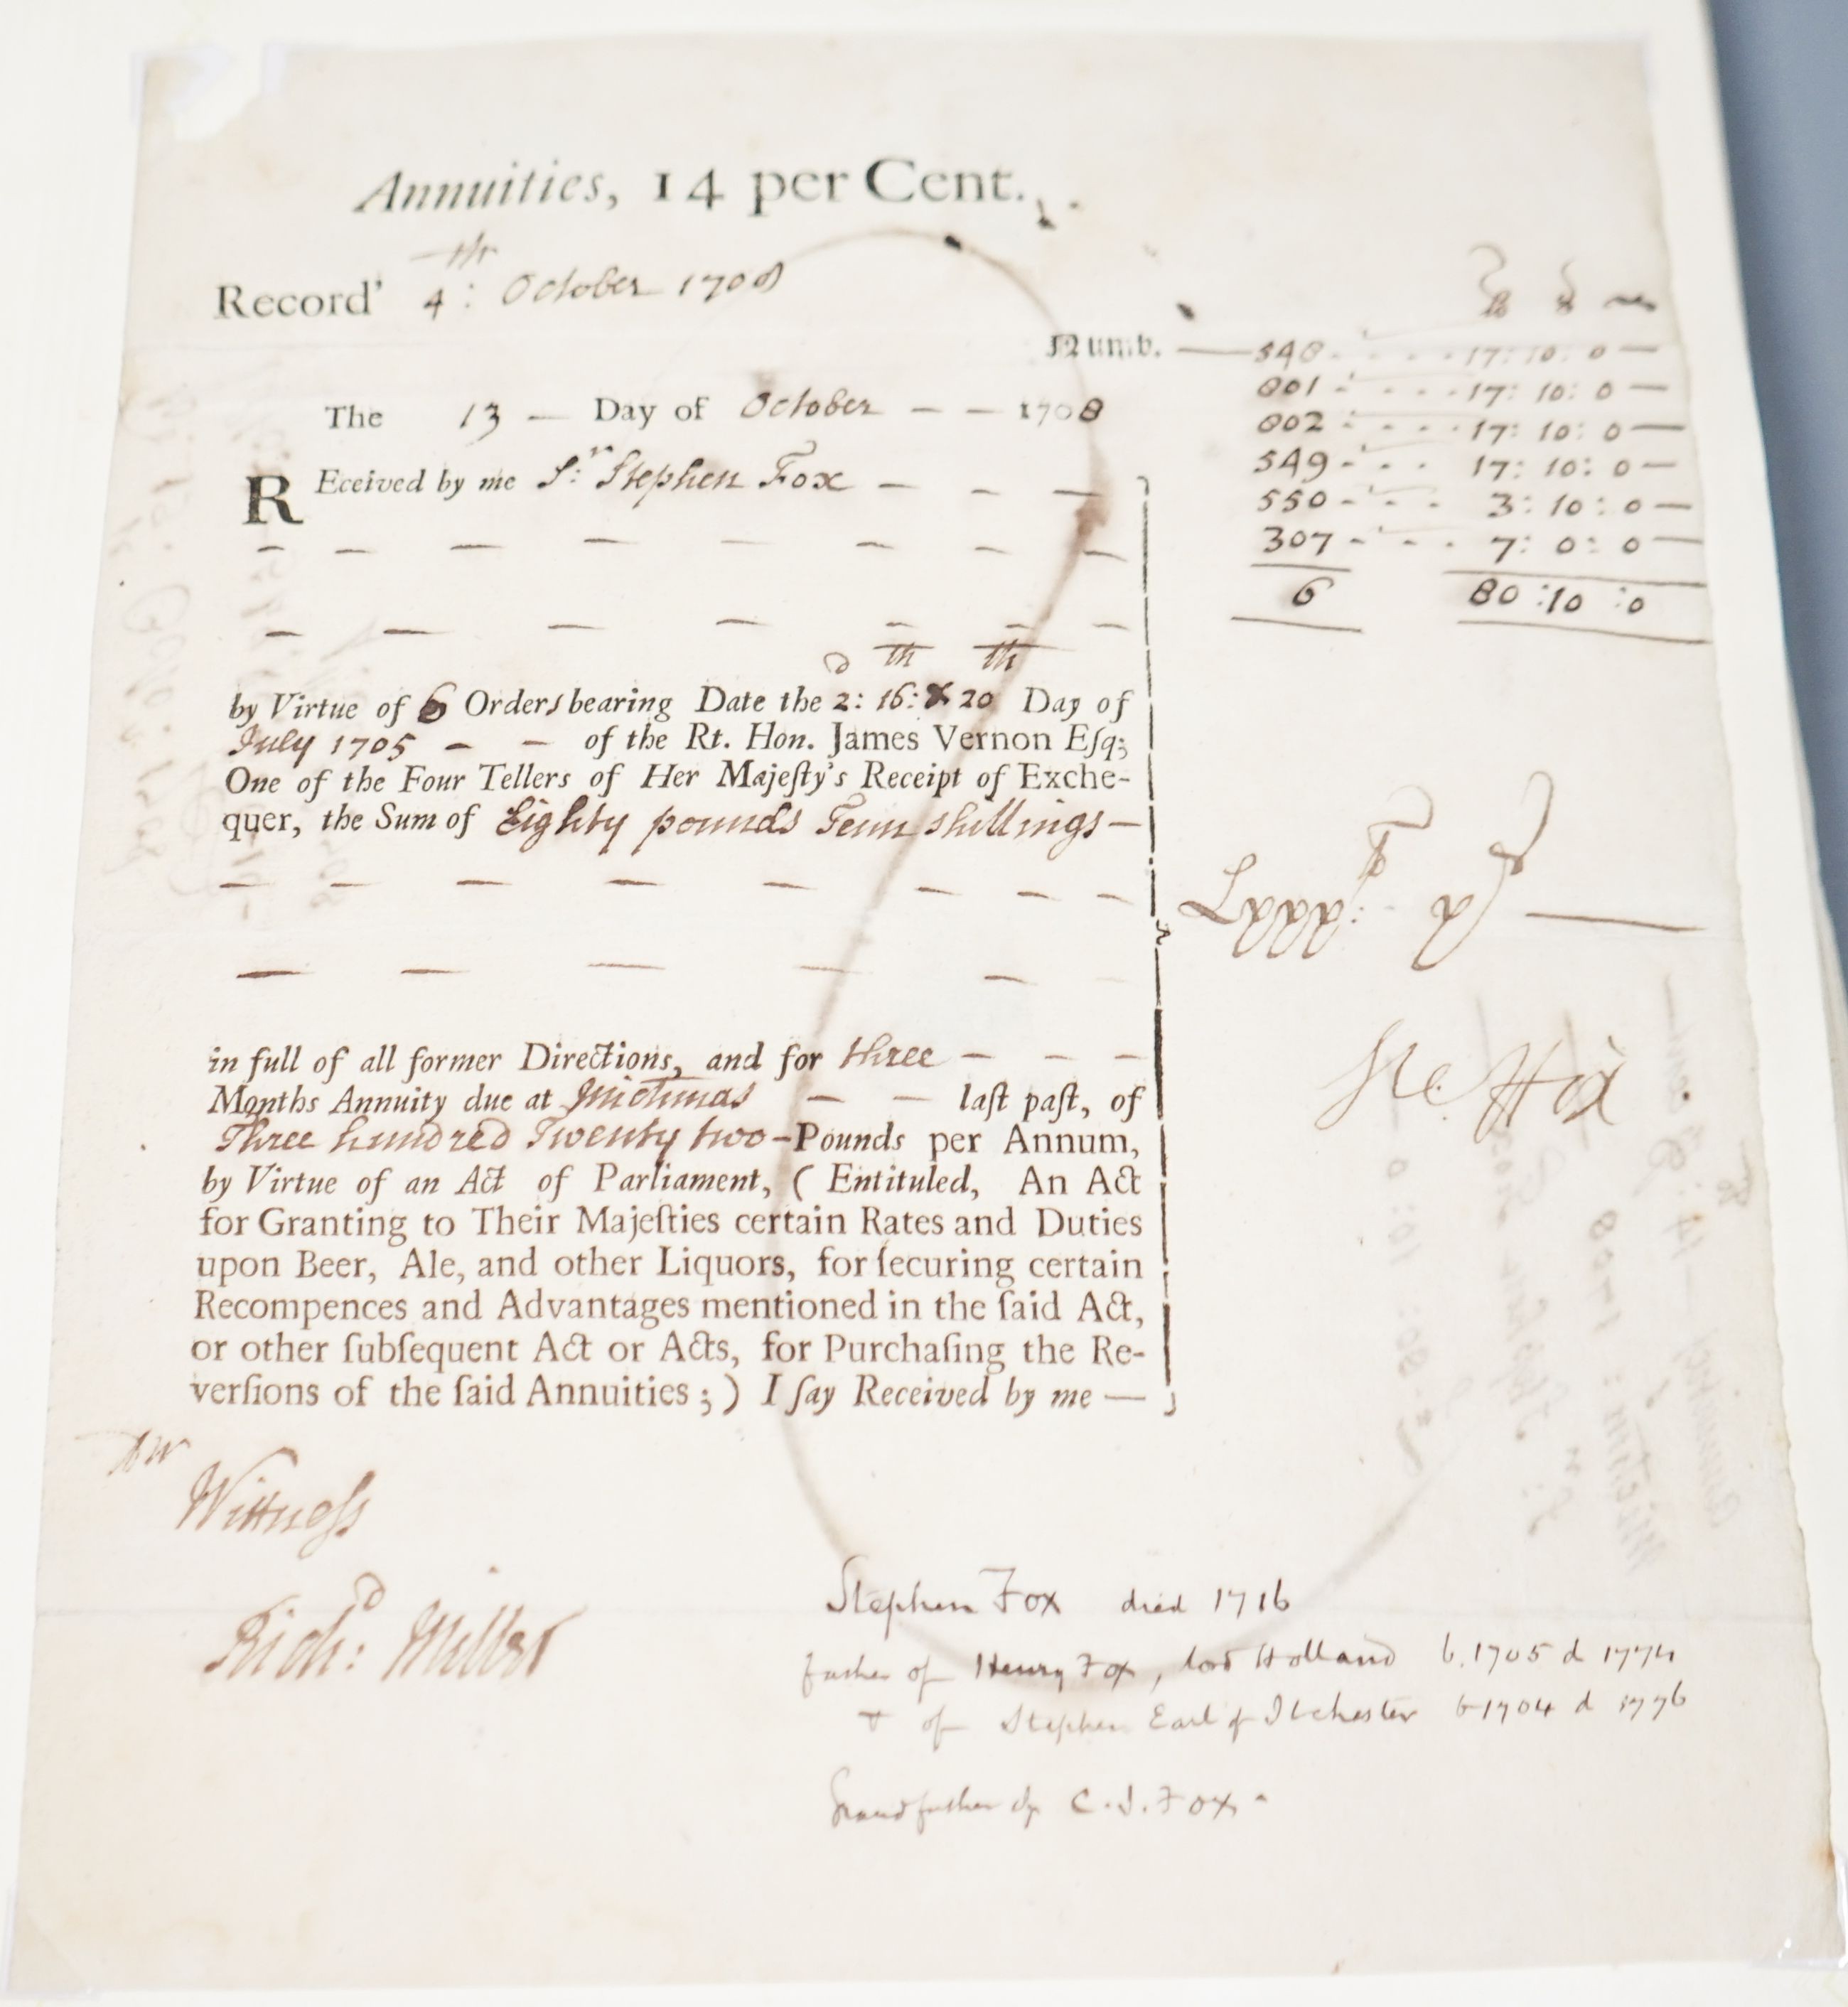 Annuities, 14 per Cent.
Record' 4th: October 1708
Numb. — 548 - - - - 17: 10: 0 —
801 - - - - 17: 10: 0 —
802 - - - - 17: 10: 0 —
549 - - - 17: 10: 0 —
550 - - - 3: 10: 0 —
307 - - - 7: 0: 0 —
6 80: 10: 0
The 13 — Day of October — — 1708
REceived by me Sr: Stephen Fox — — —
by Virtue of 6 Orders bearing Date the 2d: 16th: & 20th Day of
July 1705 — — of the Rt. Hon. James Vernon Eſq;
One of the Four Tellers of Her Majeſty's Receipt of Exche-
quer, the Sum of Eighty pounds Tenn shillings —
in full of all former Directions, and for three — — —
Months Annuity due at Michmas — — laſt paſt, of
Three hundred Twenty two - Pounds per Annum,
by Virtue of an Act of Parliament, ( Entituled, An Act
for Granting to Their Majeſties certain Rates and Duties
upon Beer, Ale, and other Liquors, for ſecuring certain
Recompences and Advantages mentioned in the ſaid Act,
or other ſubſequent Act or Acts, for Purchaſing the Re-
verſions of the ſaid Annuities ; ) I ſay Received by me —
Lxxxx li: x s —
Ste ffox
Wittneſs
Richd: Miller
Stephen Fox died 1716
father of Henry Fox, lord Holland b. 1705 d 1774
+ of Stephen Earl of Ilchester b 1704 d 1776
Grandfather of C. J. Fox.